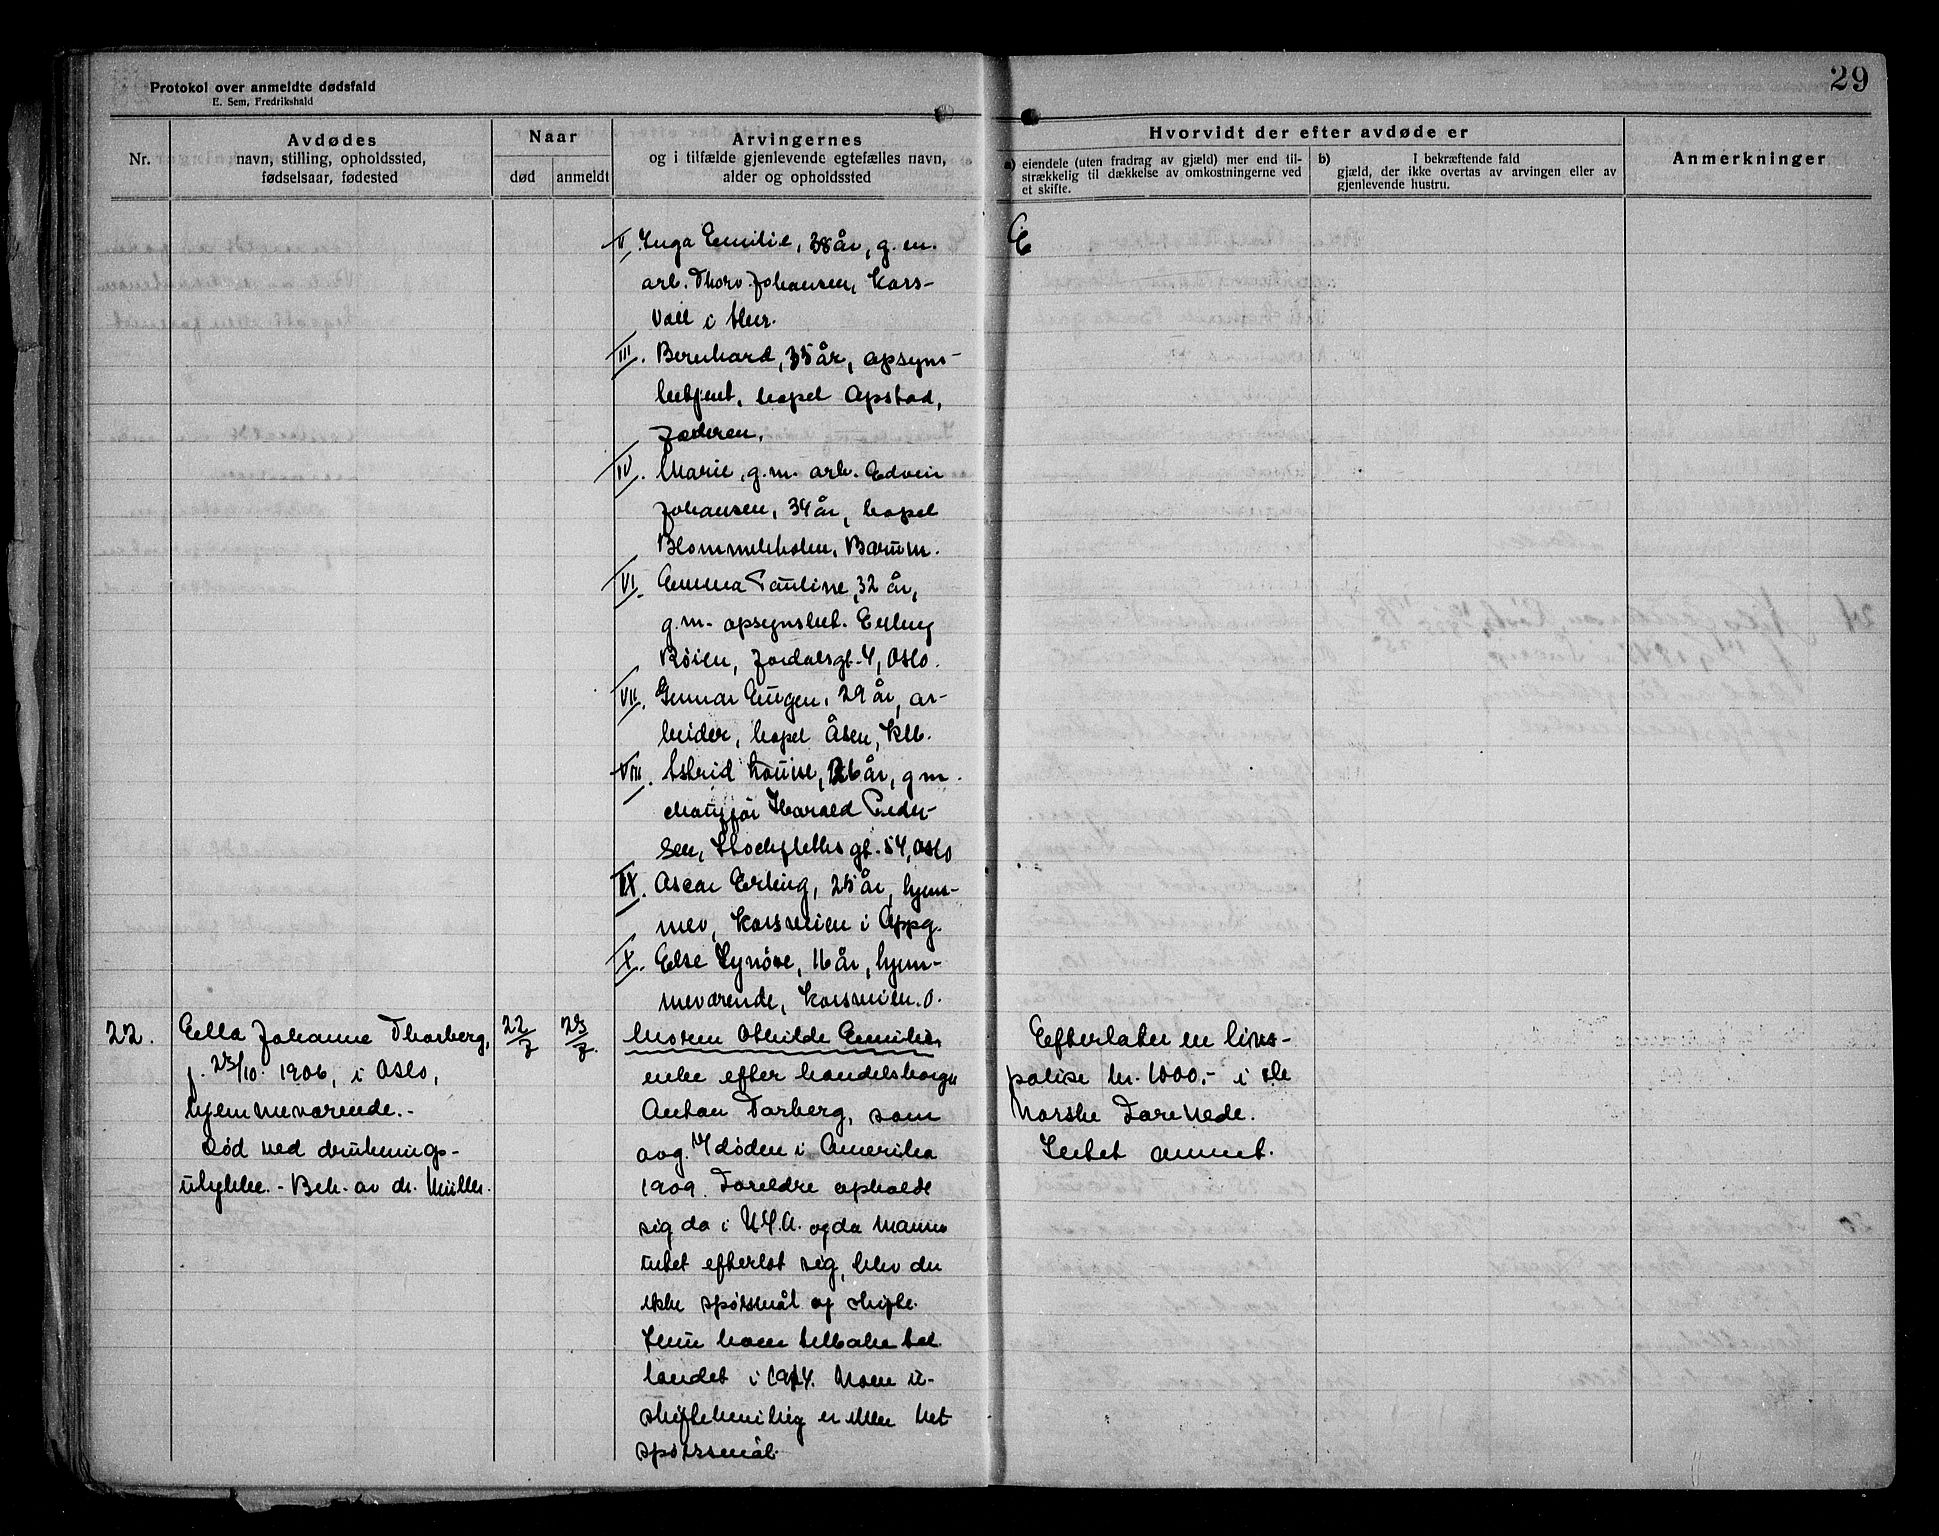 29
Protokol over anmeldte dødsfald
E. Sem, Fredrikshald
Nr.
Avdødes
navn, stilling, opholdssted,
fødselsaar, fødested
Naar
død
anmeldt
Arvingernes
og i tilfælde gjenlevende egtefælles navn,
alder og opholdssted
Hvorvidt der efter avdøde er
a) eiendele (uten fradrag av gjæld) mer end til-
strækkelig til dækkelse av omkostningerne ved
et skifte.
b) I bekræftende fald
gjæld, der ikke overtas av arvingen eller av
gjenlevende hustru.
Anmerkninger
V. Inga Emilie, 38 år, g.m.
arb. Thorv. Johansen, Kors-
voll i Hur.
III. Bernhard, 35 år, opsyns-
betjent, bopel Opstad,
Jæderen.
IV. Marie, g.m. arb. Edvin
Johansen, 34 år, bopel
Blommenholm, Bærum.
VI. Emma Pauline, 32 år,
g.m. opsynsbet. Erling
Røien, Jordalsgt. 4, Oslo.
VII. Gunnar Eugen, 29 år, ar-
beider, bopel Åsen, Klb.
VIII. Astrid Louise, 26 år, g m.
chauffør Harald Peder-
sen, Stockfleths gt. 54, Oslo
IX. Oscar Erling, 25 år, hjem-
mev, Korsveien i Oppg.
X. Else Synøve, 16 år, hjem-
meværende, Korsveien. O.
22. Ella Johanne Thorberg,
f. 23/10. 1906, i Oslo,
hjemmeværende. -
Død ved druknings-
ulykke. - Bek. av dr. Müller.
22/7
23/7.
Moren Othilde Emilie,
enke efter handelsborger
Anton Torberg, som
avg. v/ døden i Amerika
1909. Foreldre opholdt
sig da i U.S.A. og da mannen
intet efterlot sig, blev der
ikke spørsmål og skifte.
Hun kom tilbake til
landet i 1914. Noen u-
skiftebevilling er eller intet
spørsmål.
E
Efterlater en livs-
polise kr. 1000,- i de
Norske Forenede.
Intet annet.